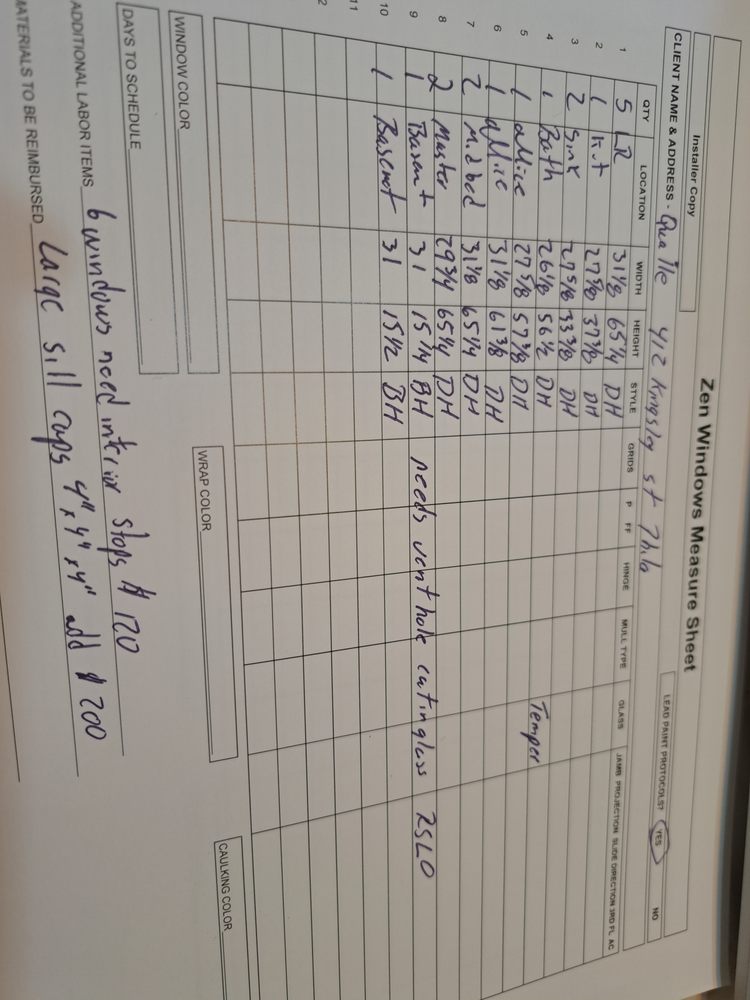 Installer Copy
Zen Windows Measure Sheet
CLIENT NAME & ADDRESS - Quaile 412 Kingsley st Phila
LEAD PAINT PROTOCOLS? YES NO
QTY LOCATION WIDTH HEIGHT STYLE GRIDS P FF HINGE MULL TYPE GLASS JAMB PROJECTION SLIDE DIRECTION 3RD FL AC
1 5 LR 31 1/8 65 1/4 DH
2 1 kit 27 5/8 37 3/8 DH
3 2 Sink 27 5/8 33 3/8 DH
4 1 Bath 26 1/8 56 1/2 DH Temper
5 1 office 27 5/8 57 3/8 DH
6 1 office 31 1/8 61 3/8 DH
7 2 Midbed 31 1/8 65 1/4 DH
8 2 Master 29 3/4 65 1/4 DH
9 1 Basemt 31 15 1/4 BH needs vent hole cut in glass
10 1 Basemet 31 15 1/2 BH
11
2
WINDOW COLOR
WRAP COLOR
CAULKING COLOR
DAYS TO SCHEDULE
ADDITIONAL LABOR ITEMS 6 windows need interior stops $120
MATERIALS TO BE REIMBURSED Large sill caps 4" x 4" x 4" add $200